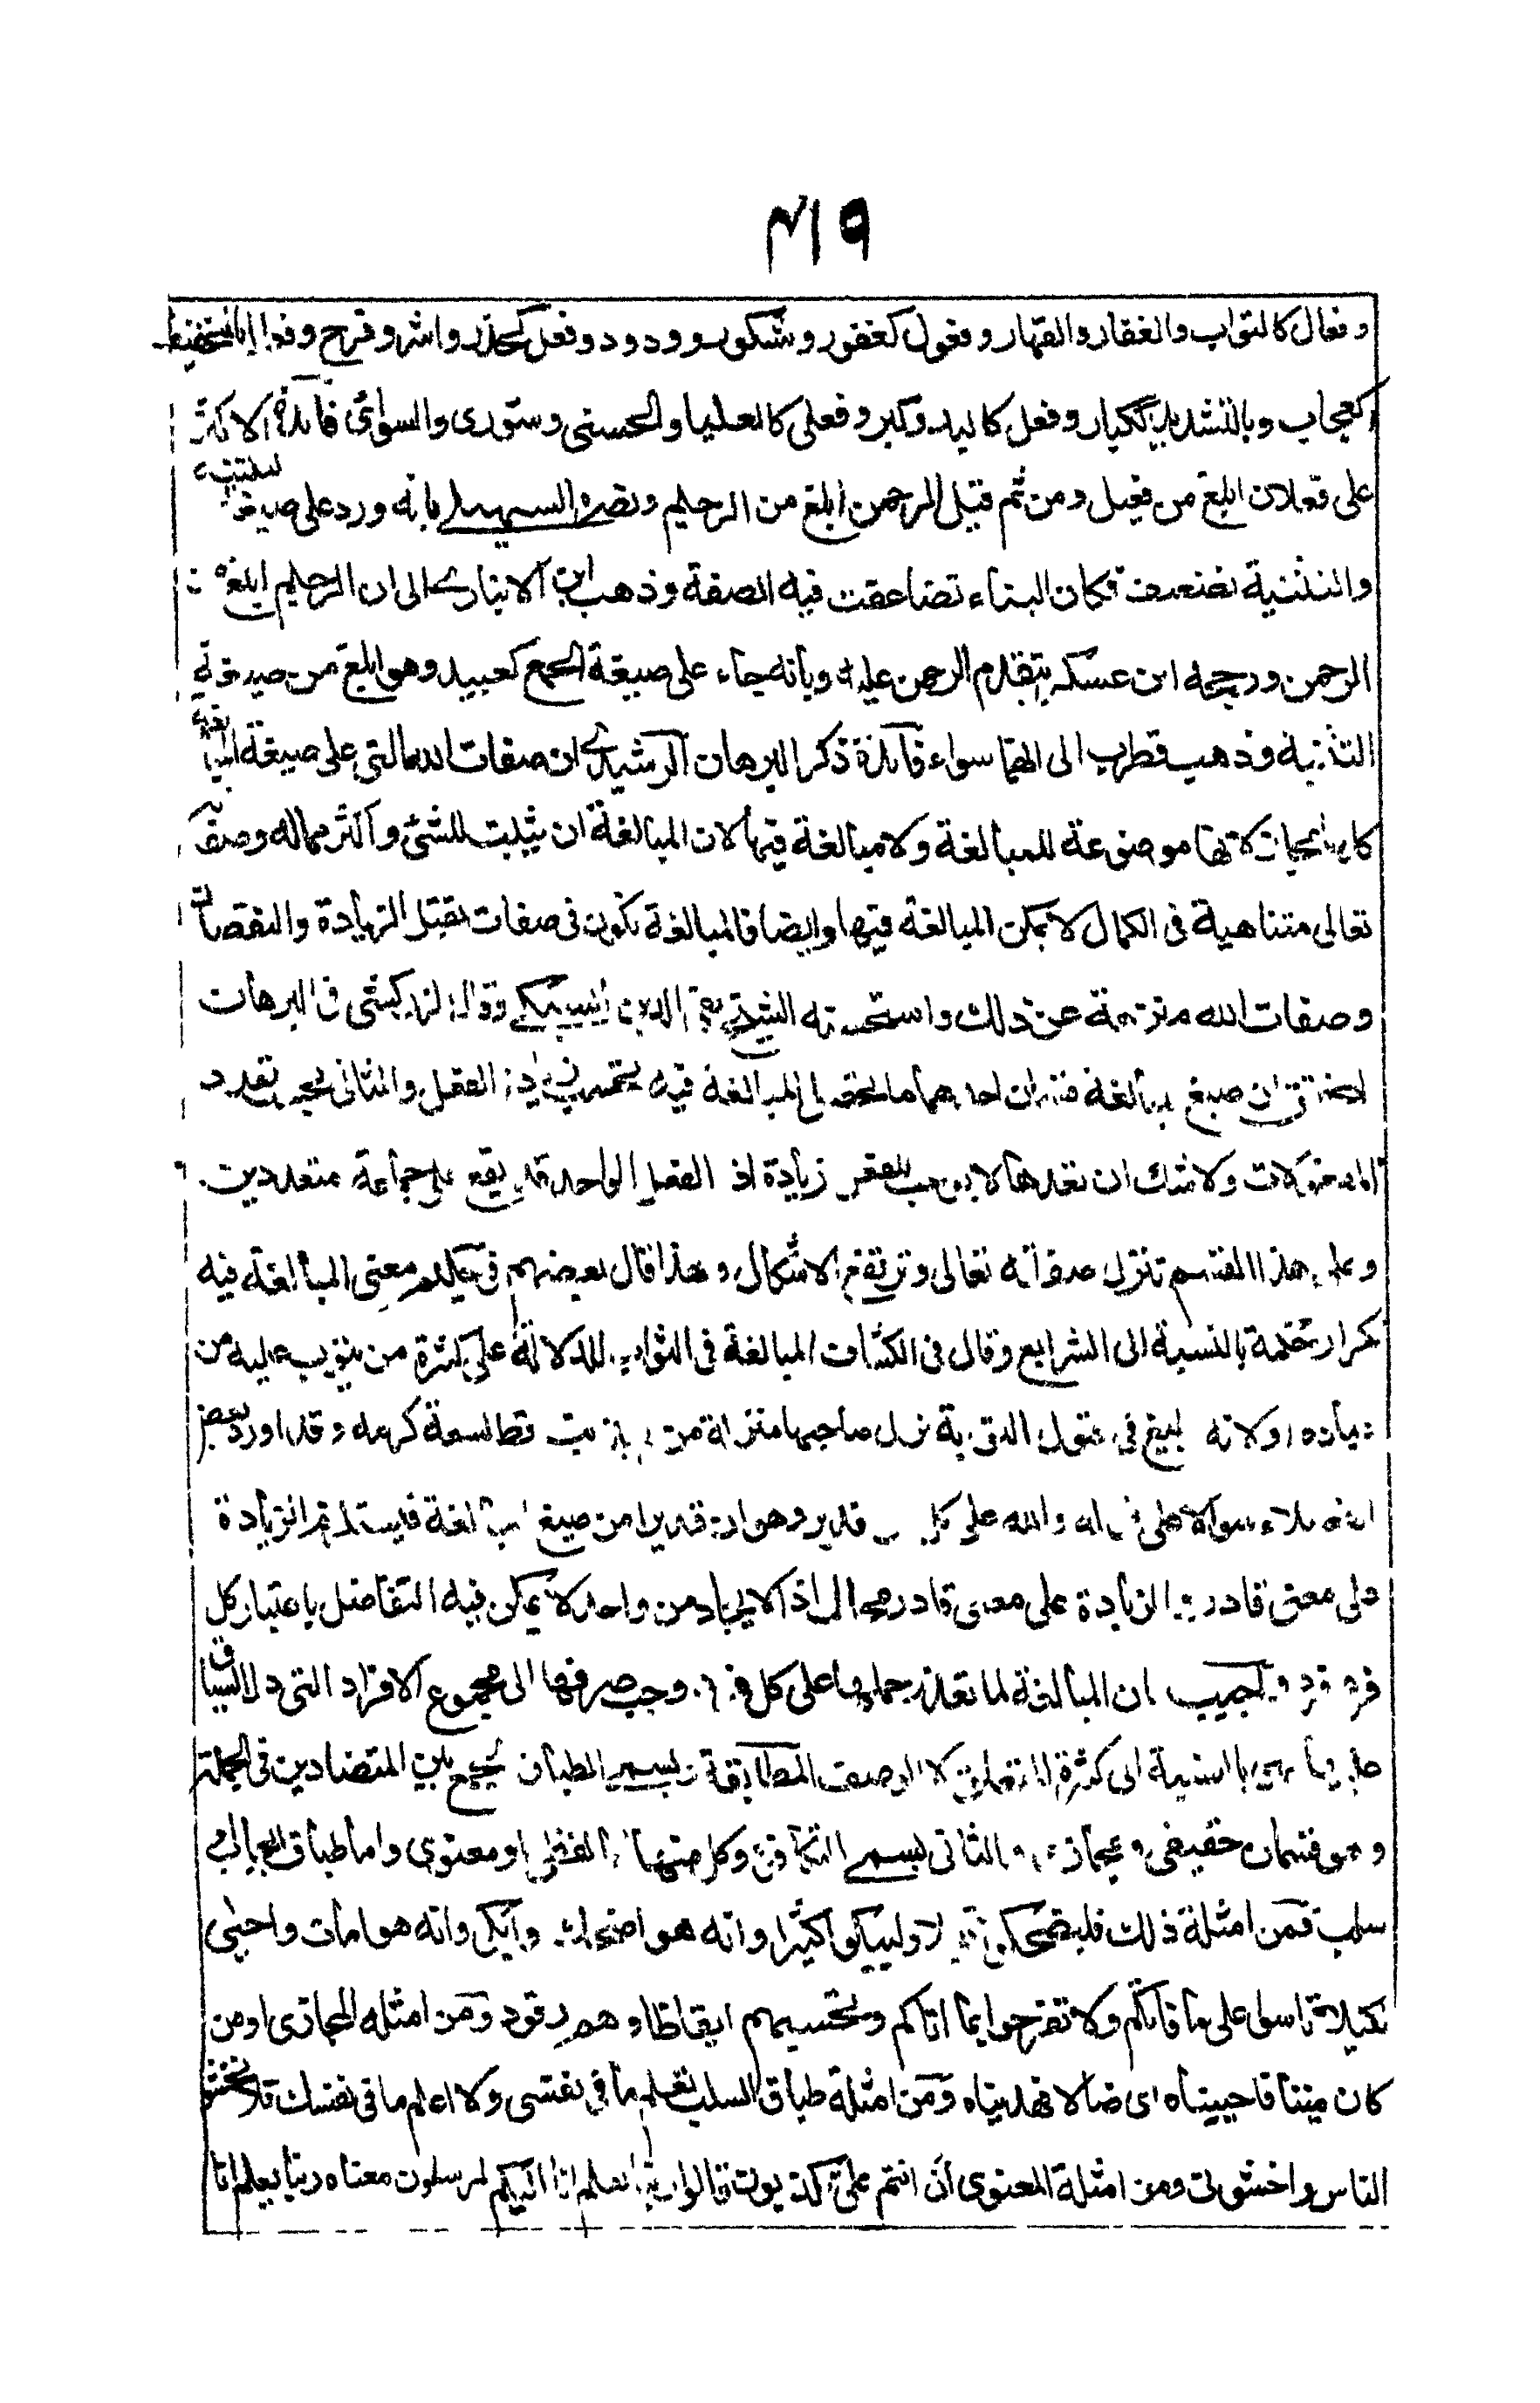 ٤١٩
وفعال كالتواب والغفار والقهار وفعول كغفور وشكور وودود وفعل كحذر واشر وفرح وفعال بالتخفيف
كعجاب وبالتشديد ككبار وفعل كالبد وكبر وفعلى كالعليا والحسنى وشورى والسوأى فائدة الاكثر
على فعلان ابلغ من فعيل ومن ثم قيل الرحمن ابلغ من الرحيم ونصره السهيلى بانه ورد على صيغة التثنية
والتثنية تضعيف فكان البناء تضاعفت فيه الصفة وذهب ابن الانبارى الى ان الرحيم ابلغ من
الرحمن ورجحه ابن عسكر بتقدم الرحمن عليه وبانه جاء على صيغة الجمع كعبيد وهو ابلغ من صيغة
التثنية وذهب قطرب الى انهما سواء فائدة ذكر البرهان الرشيدى ان صفات الله التى على صيغة المبالغة
كلها مجاز لانها موضوعة للمبالغة ولا مبالغة فيها لان المبالغة ان يثبت للشئ اكثر مما له وصفاته
تعالى متناهية فى الكمال لا يمكن المبالغة فيها وايضا فالمبالغة تكون فى صفات تقبل الزيادة والنقصان
وصفات الله منزهة عن ذلك واستحسنه الشيخ تقى الدين السبكى وقال الزركشى فى البرهان
التحقيق ان صيغ المبالغة قسمان احدهما ما تحصل المبالغة فيه بحسب زيادة الفعل والثانى بحسب تعدد
المفعولات ولا شك ان تعددها لا يوجب للفعل زيادة اذ الفعل الواحد قد يقع على جماعة متعددين
وعلى هذا القسم تنزل صفاته تعالى ويرتفع الاشكال ولهذا قال بعضهم فى حكيم معنى المبالغة فيه
تكرار حكمه بالنسبة الى الشرايع وقال فى الكشاف المبالغة فى التواب للدلالة على كثرة من يتوب عليه من
عباده اولانه بليغ فى قبول التوبة نزل صاحبها منزلة من لم يذنب قط لسعة كرمه وقد اورد بعض
الفضلاء سوالا على قوله والله على كل شئ قدير وهو ان قديرا من صيغ المبالغة فيستلزم الزيادة
على معنى قادر والزيادة على معنى قادر محال اذ الايجاد من واحد لا يمكن فيه التفاضل باعتبار كل
فرد فرد واجيب بان المبالغة لما تعذر حملها على كل فرد وجب صرفها الى مجموع الافراد التى دل السياق
عليها فهى بالنسبة الى كثرة المتعلق لا الوصف المطابقة وتسمى الطباق الجمع بين المتضادين فى الجملة
وهو قسمان حقيقى ومجازى والثانى يسمى التكافؤ وكل منهما اما لفظى او معنوى واما طباق ايجاب او
سلب فمن امثلة ذلك فليضحكوا قليلا وليبكوا كثيرا وانه هو اضحك وابكى وانه هو امات واحيى
لكيلا تاسوا على ما فاتكم ولا تفرحوا بما اتاكم وتحسبهم ايقاظا وهم رقود ومن امثلة المجازى اومن
كان ميتا فاحييناه اى ضالا فهديناه ومن امثلة طباق السلب تعلم ما فى نفسى ولا اعلم ما فى نفسك فلا تخشوا
الناس واخشونى ومن امثلة المعنوى ان انتم الا تكذبون قالوا ربنا يعلم انا اليكم لمرسلون معناه ربنا يعلم انا